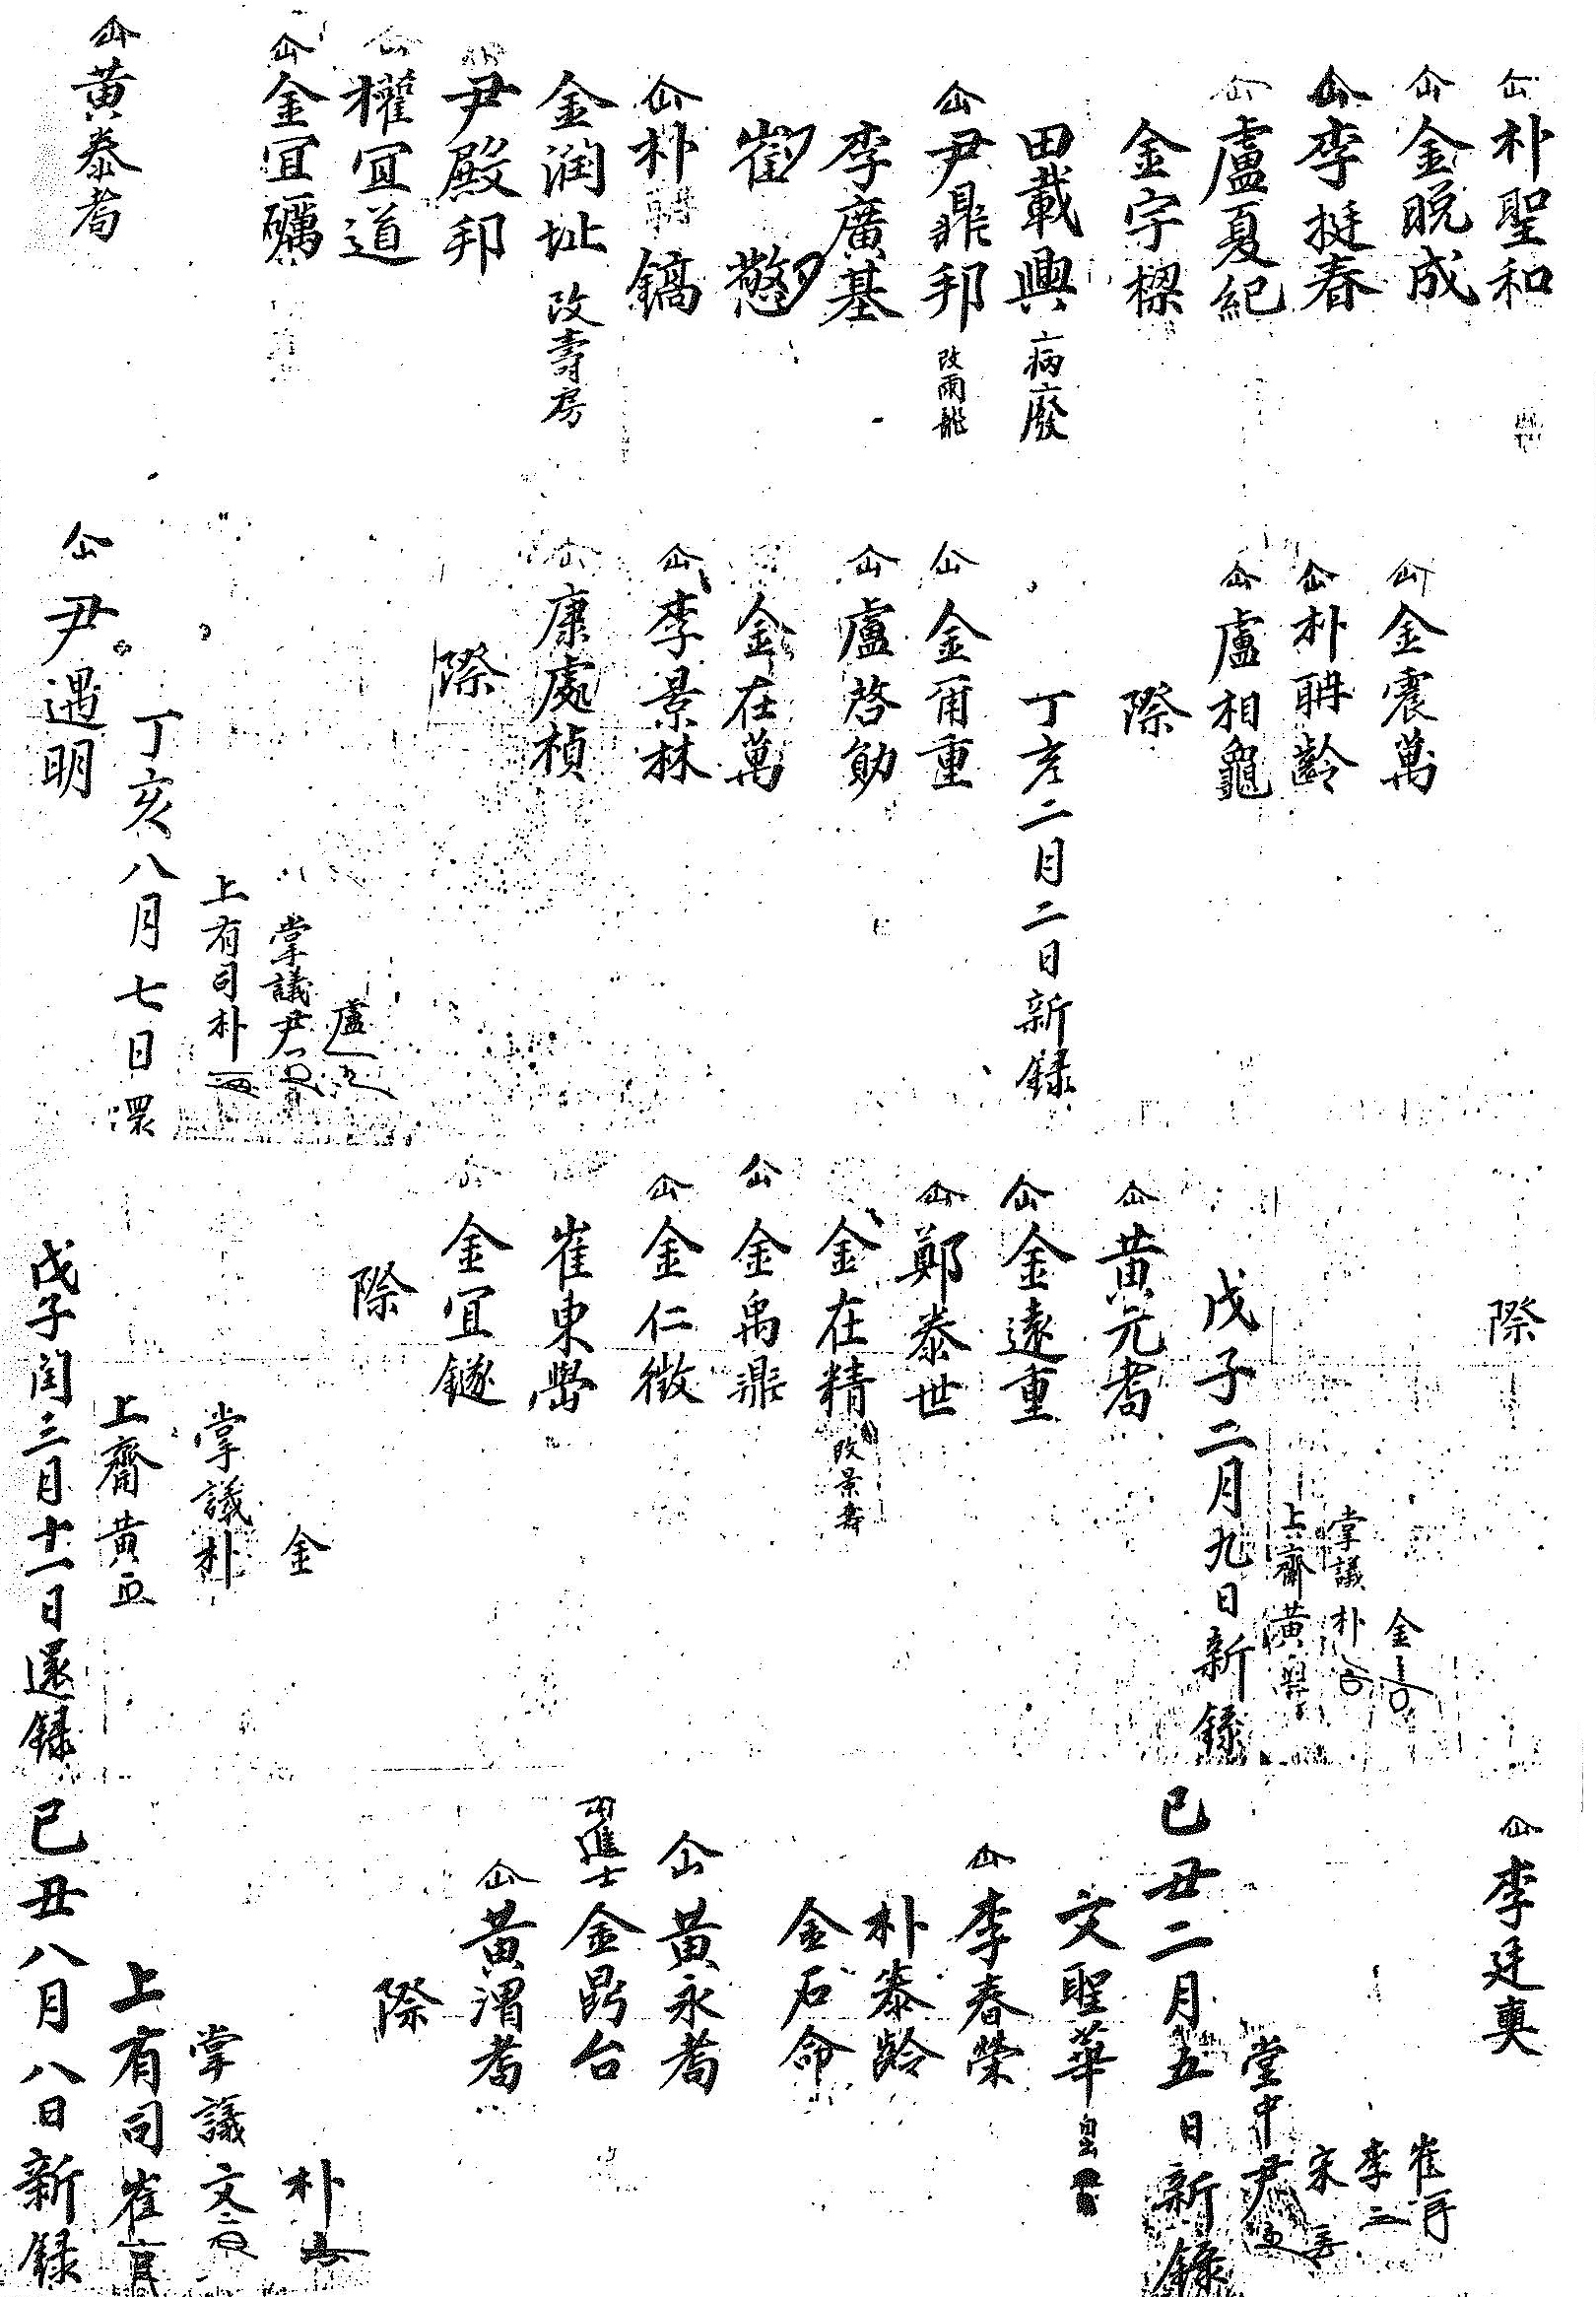 仚 朴聖和
仚 金晩成
仚 李挺春
仚 盧夏紀
金宇樑
田載興 病廢
仚 尹鼎邦 改雨龍
李廣基
崔 憼
仚 朴 鎬
金潤址 改壽房
尹殷邦
仚 權冝道
仚 金冝礪
仚 黃泰耉
仚 金震萬
仚 朴聃齡
仚 盧相龜
際
丁亥二月二日新録
仚 金爾重
仚 盧啓勛
金在萬
仚 李景林
仚 康處楨
際
盧
掌議尹
上有司朴
丁亥八月七日還
仚 尹遇明
際
金
掌議朴
上齋黃
戊子二月九日新録
仚 黃元耉
仚 金遠重
仚 鄭泰世
金在精 改景壽
仚 金禹鼎
仚 金仁徵
崔東嶨
金冝鐩
際
金
掌議朴
上齋黃
戊子閏三月十一日還録
仚 李廷奭
崔
李
宋
堂中尹
已丑二月五日新録
文聖華
仚 李春榮
朴泰齡
金石命
仚 黃永耉
進士 金台
仚 黃渭耉
際
朴
掌議文
上有司崔
已丑八月八日新録